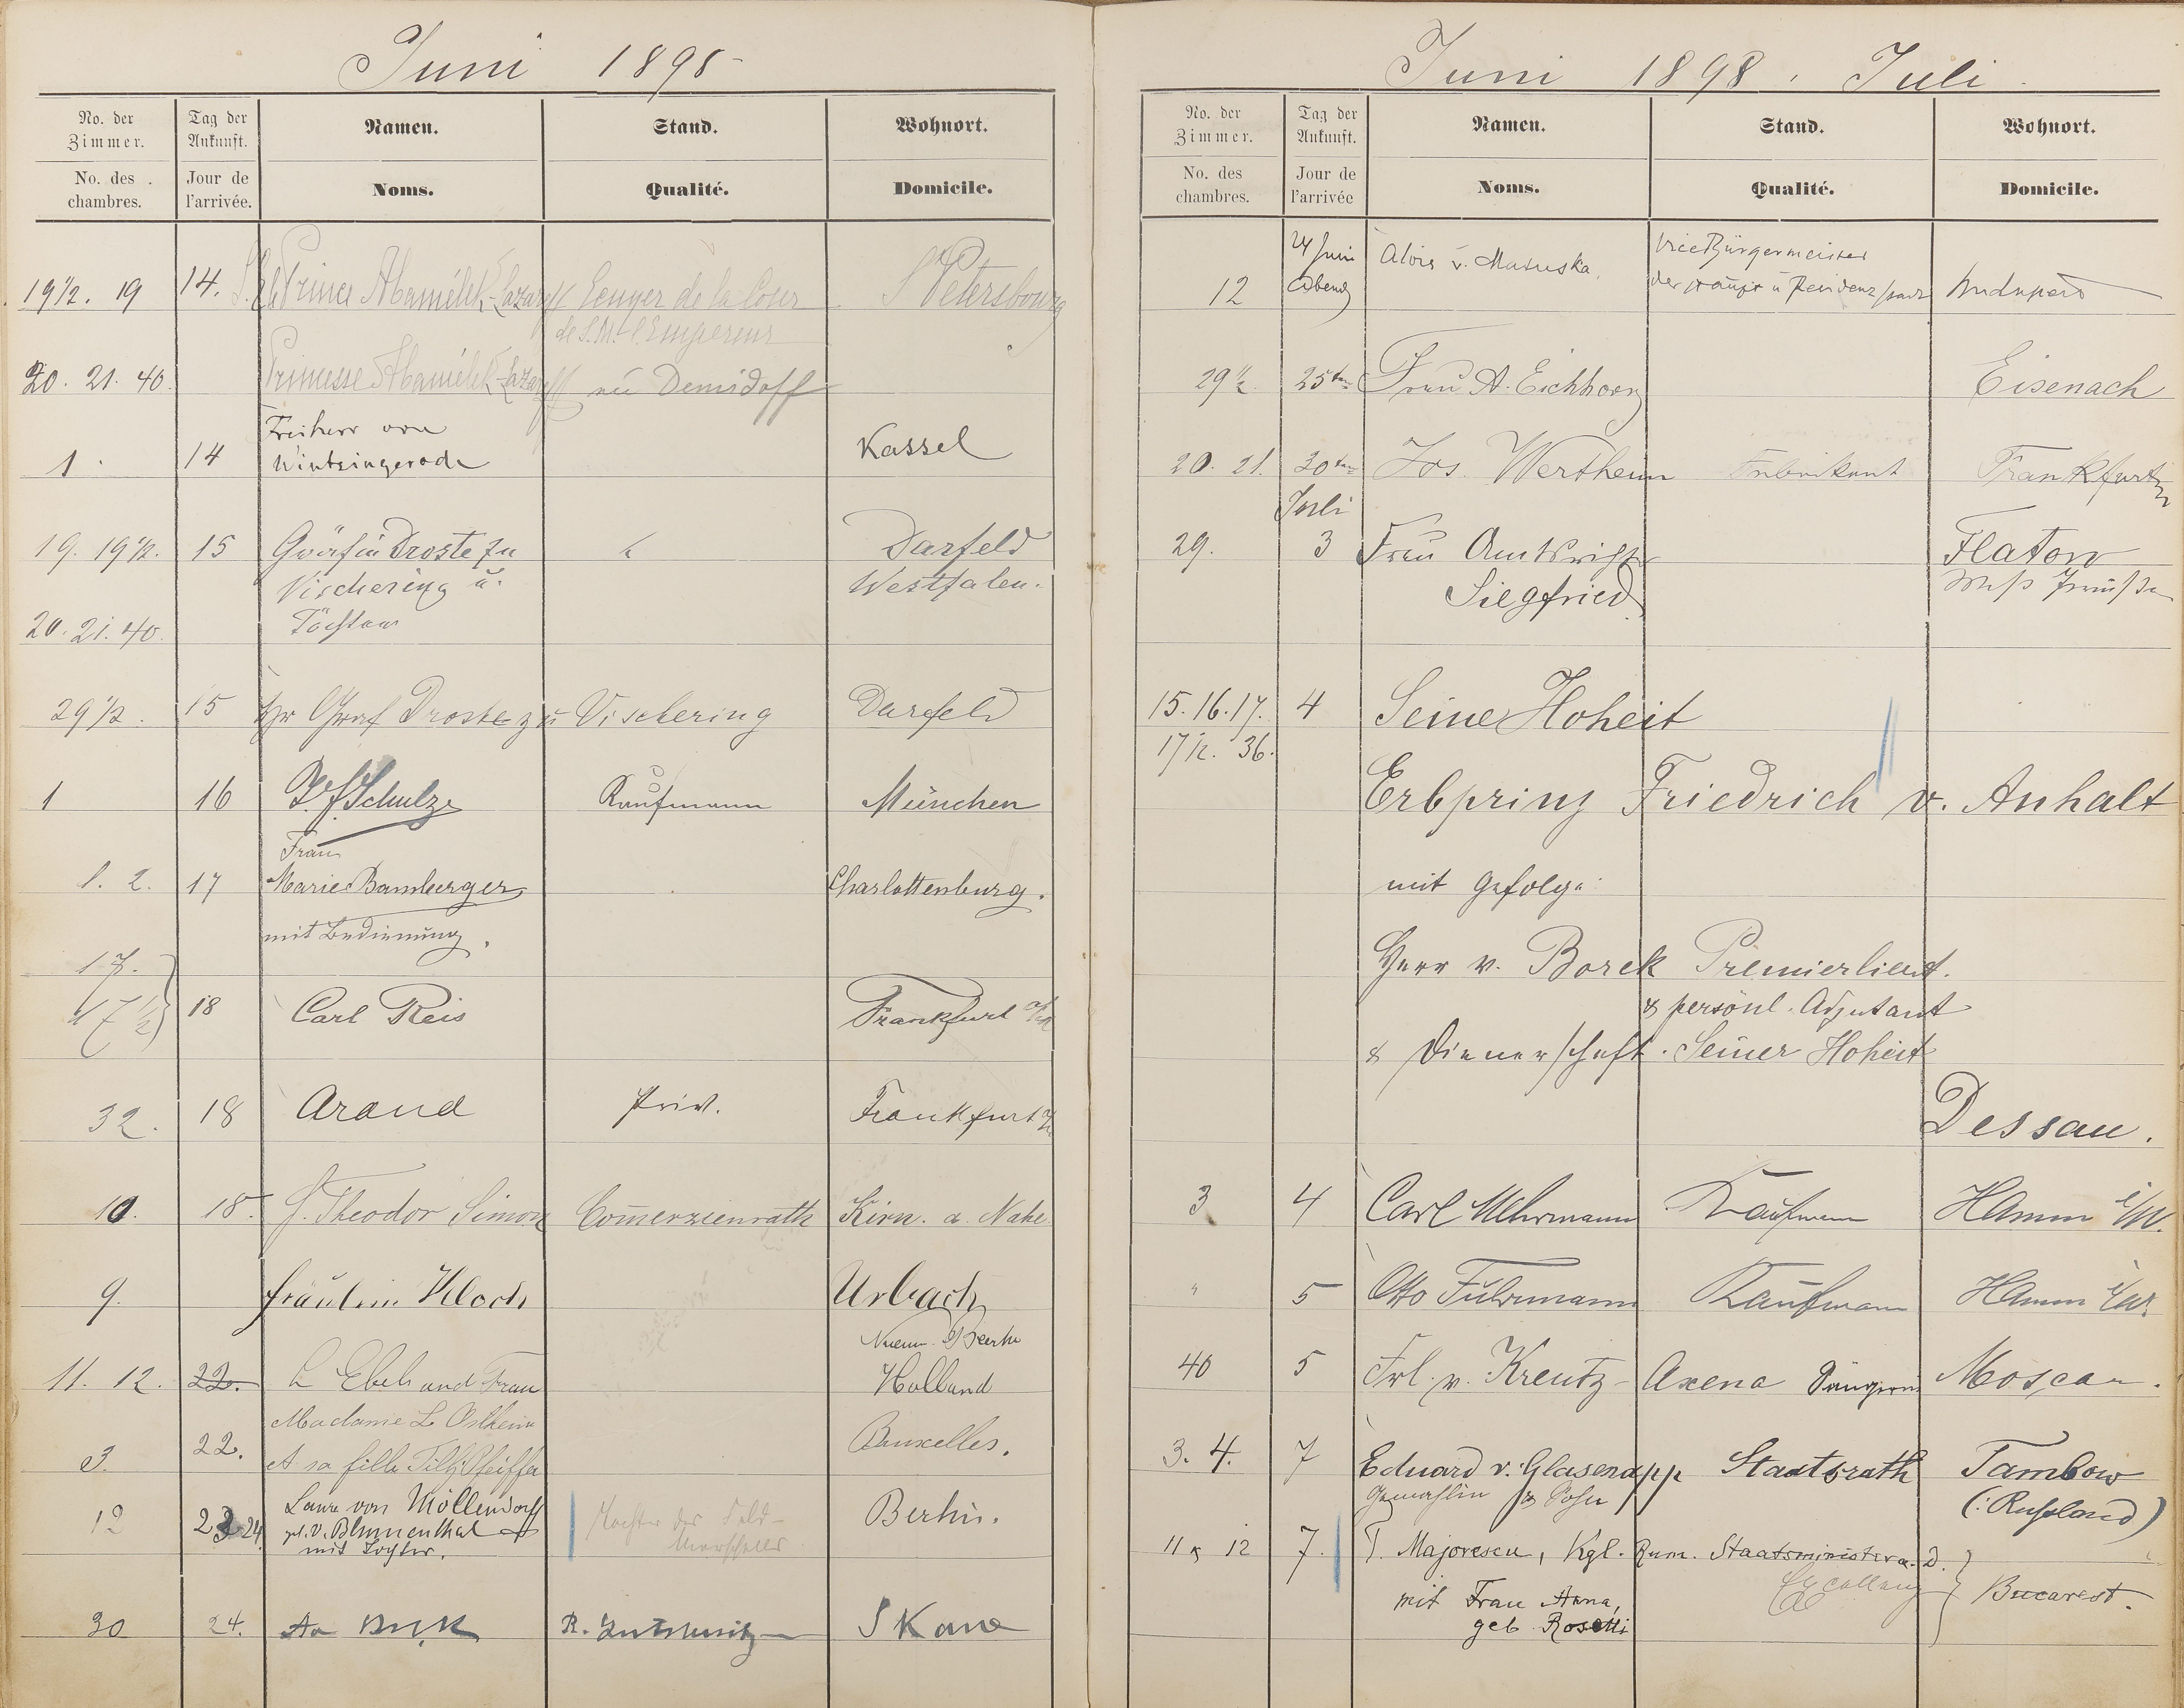 Juni 1898
No. der Zimmer. Tag der Ankunft. Namen. Stand. Wohnort.
No. des chambres. Jour de l'arrivée. Noms. Qualité. Domicile.
19 1/2. 19 14. Prince Abamélek-Lazareff Ecuyer de la Cour S Petersbourg
de S. M. l'Empereur
20. 21. 40. Princesse Abamélek-Lazareff née Demidoff
Freiherr von
1. 14 Wintzingerode Kassel
19. 19 1/2. 15 Gräfin Droste zu Darfeld
Vischering u. Westfalen.
20. 21. 40. Töchter
29 1/2. 15 Hr Graf Droste zu Vischering Darfeld
1 16 Schulze Kaufmann München
Frau
1. 2. 17 Marie Bamberger Charlottenburg.
mit Bedienung.
17.
17 1/2 18 Carl Reis Frankfurt a/M
32. 18 Arand Priv. Frankfurt
10. 18. Theodor Simon Commerzienrath Kirn. a. Nahe
9. Fräulein Urbach
11. 12. 22. L Ebels und Frau Holland
Madame L Ostheim
3. 22. et sa fille Tilly Pfeiffer Bruxelles.
12 23 24 Laura von Möllendorff Tochter des Feld- Berlin.
geb. v. Blumenthal marschalls
mit Tochter.
30 24.
Juni 1898. Juli.
No. der Zimmer. Tag der Ankunft. Namen. Stand. Wohnort.
No. des chambres. Jour de l'arrivée Noms. Qualité. Domicile.
24 Juni Alois v. Matuska. Vice Bürgermeister
12 Abend der Haupt u Residenzstadt Budapest
29 1/2 25ten Frau A. Eichhorn Eisenach
20. 21. 30ten Jos. Wertheim Fabrikant Frankfurt
Juli
29. 3 Frau Amtsrichter Flatow
Siegfried West Preußen
15. 16. 17. 4 Seine Hoheit
17 1/2. 36.
Erbprinz Friedrich v. Anhalt
mit Gefolge:
Herr v. Borck Premierlieut.
& persönl. Adjutant
& Dienerschaft. Seiner Hoheit
Dessau.
3 4 Carl Uhrmann Kaufmann Hamm i/W.
" 5 Otto Fuhrmann Kaufmann Hamm i/W.
40 5 Frl. v. Kreutz- Axena Sängerin Moscau.
3. 4. 7 Eduard v. Glasenapp Staatsrath Tambow
Gemahlin & Sohn (: Rußland)
11 & 12 7. T. Majorescu, Kgl. Rum. Staatsminister a. D.
Excellenz
mit Frau Anna, Bucarest.
geb. Rosetti